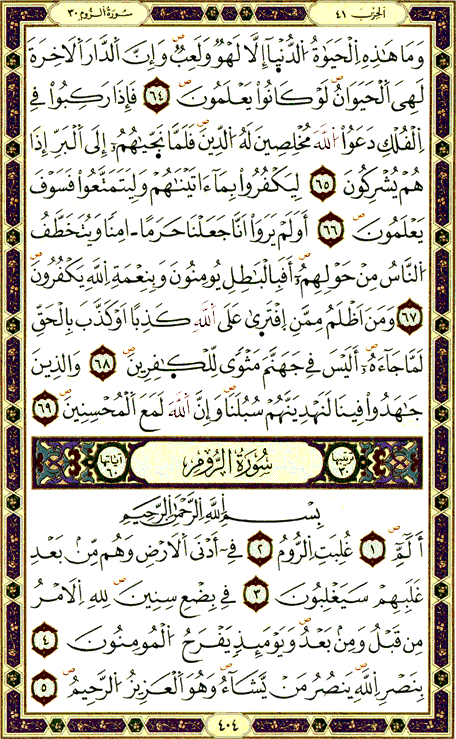 الحزب ٤١
سورة الروم ٣٠
وَمَا هَٰذِهِ اِ۬لْحَيَوٰةُ اُ۬لدُّنْيَآ إِلَّا لَهْوٞ وَلَعِبٞۖ وَإِنَّ اَ۬لدَّارَ اَ۬لَاخِرَةَ
لَهِيَ اَ۬لْحَيَوَانُۖ لَوْ كَانُواْ يَعْلَمُونَۖ ٦٤ فَإِذَا رَكِبُواْ فِے
اِ۬لْفُلْكِ دَعَوُاْ اُ۬للَّهَ مُخْلِصِينَ لَهُ اُ۬لدِّينَۖ فَلَمَّا نَجّ۪يٰهُمُۥٓ إِلَى اَ۬لْبَرِّ إِذَا
هُمْ يُشْرِكُونَۖ ٦٥ لِيَكْفُرُواْ بِمَآ ءَاتَيْنَٰهُمْ وَلِيَتَمَتَّعُواْۖ فَسَوْفَ
يَعْلَمُونَۖ ٦٦ أَوَلَمْ يَرَوَاْ اَنَّا جَعَلْنَا حَرَماً ءَامِناٗ وَيُتَخَطَّفُ
اُ۬لنَّاسُ مِنْ حَوْلِهِمُۥٓۖ أَفَبِالْبَٰطِلِ يُومِنُونَ وَبِنِعْمَةِ اِ۬للَّهِ يَكْفُرُونَۖ
٦٧ وَمَنَ اَظْلَمُ مِمَّنِ اِ۪فْتَر۪يٰ عَلَى اَ۬للَّهِ كَذِباً اَوْ كَذَّبَ بِالْحَقِّ
لَمَّا جَآءَهُۥٓۖ أَلَيْسَ فِے جَهَنَّمَ مَثْوٗى لِّلْكٰ۪فِرِينَۖ ٦٨ وَالذِينَ
جَٰهَدُواْ فِينَا لَنَهْدِيَنَّهُمْ سُبُلَنَاۖ وَإِنَّ اَ۬للَّهَ لَمَعَ اَ۬لْمُحْسِنِينَۖ ٦٩
ترتيبها ٣٠ سُورَةُ الرُّومِ آياتها
بِسْمِ اِ۬للَّهِ اِ۬لرَّحْمَٰنِ اِ۬لرَّحِيمِ
أَلَٓمِّٓۖ ١ غُلِبَتِ اِ۬لرُّومُ ٢ فِےٓ أَدْنَى اَ۬لَارْضِ وَهُم مِّنۢ بَعْدِ
غَلَبِهِمْ سَيَغْلِبُونَ ٣ فِے بِضْعِ سِنِينَۖ لِلهِ اِ۬لَامْرُ
مِن قَبْلُ وَمِنۢ بَعْدُۖ وَيَوْمَئِذٖ يَفْرَحُ اُ۬لْمُومِنُونَ ٤
بِنَصْرِ اِ۬للَّهِۖ يَنصُرُ مَنْ يَّشَآءُۖ وَهُوَ اَ۬لْعَزِيزُ اُ۬لرَّحِيمُۖ ٥
٤٠٤